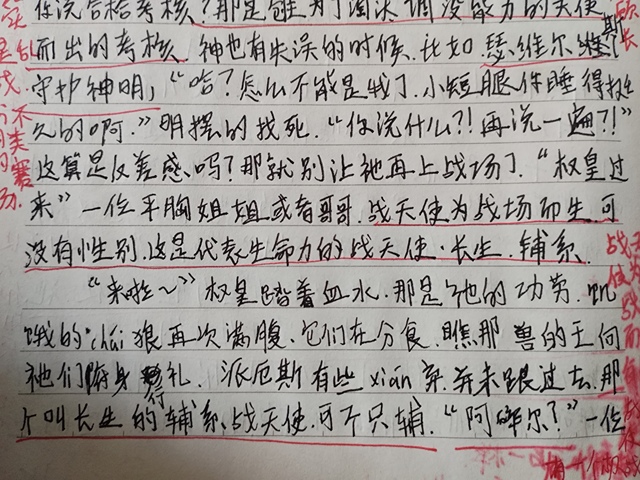 你说合格考核？那是筛为了淘汰调没能力的天使
而出的考核. 神也有失误的时候. 比如 瑟维尔维斯
守护神明, “哈？怎么不能是我了. 小短腿你睡得挺
久的啊.” 明摆的找死. “你说什么?! 再说一遍?!”
这算是反差感吗？那就别让祂再上战场了. “权皇过
来” 一位平胸姐姐或者哥哥. 战天使为战场而生. 可
没有性别. 这是代表生命力的战天使·长生. 辅系.
“来啦~” 权皇踏着血水. 那是祂的功劳. 饥
饿的 chái 狼再次满腹. 它们在分食. 瞧那 兽的王向
祂们俯身行礼. 派厄斯有些 xián 弃. 并未跟过去. 那
个叫长生的辅系战天使. 可不只辅. “阿 尔？” 一位